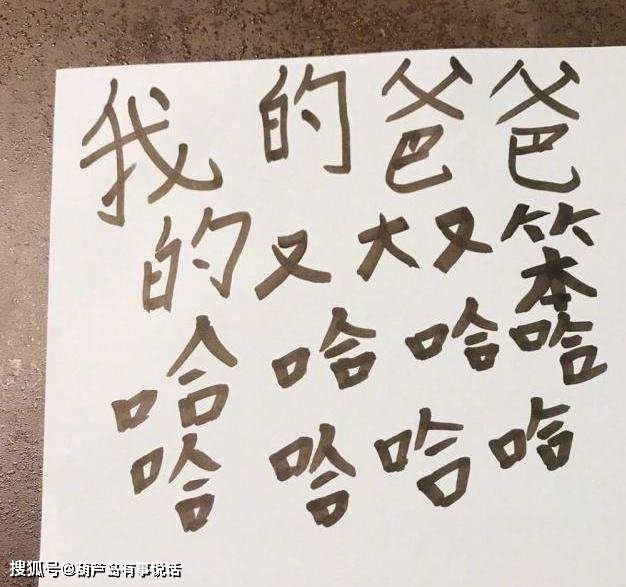 我的爸爸
的又大又笨
哈哈哈哈
哈哈哈哈
搜狐号@葫芦岛有事说话